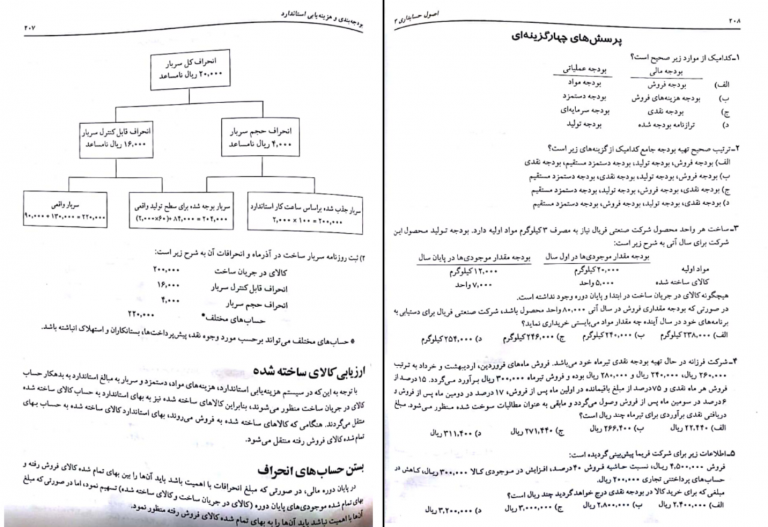 ۲۰۸
اصول حسابداری ۳
پرسش‌های چهارگزینه‌ای
۱ـ کدامیک از موارد زیر صحیح است؟
بودجه مالی بودجه عملیاتی
الف) بودجه فروش بودجه مواد
ب) بودجه هزینه‌های فروش بودجه دستمزد
ج) بودجه نقدی بودجه سرمایه‌ای
د) ترازنامه بودجه شده بودجه تولید
۲ـ ترتیب صحیح تهیه بودجه جامع کدامیک از گزینه‌های زیر است؟
الف) بودجه فروش، بودجه تولید، بودجه دستمزد مستقیم، بودجه نقدی
ب) بودجه فروش، بودجه تولید، بودجه نقدی، بودجه دستمزد مستقیم
ج) بودجه نقدی، بودجه فروش، بودجه تولید، بودجه دستمزد مستقیم
د) بودجه نقدی، بودجه تولید، بودجه فروش، بودجه دستمزد مستقیم
۳ـ ساخت هر واحد محصول شرکت صنعتی فریال نیاز به مصرف ۳ کیلوگرم مواد اولیه دارد. بودجه تولید محصول این
شرکت برای سال آتی به شرح زیر است:
بودجه مقدار موجودی‌ها در اول سال بودجه مقدار موجودی‌ها در پایان سال
مواد اولیه ۲۰,۰۰۰ کیلوگرم ۱۲,۰۰۰ کیلوگرم
کالای ساخته شده ۵,۰۰۰ واحد ۷,۰۰۰ واحد
هیچگونه کالای در جریان ساخت در ابتدا و پایان دوره وجود نداشته است.
در صورتی که بودجه مقداری فروش در سال آتی ۸۰,۰۰۰ واحد محصول باشد، شرکت صنعتی فریال برای دستیابی به
برنامه‌های خود در سال آینده چه مقدار مواد می‌بایستی خریداری نماید؟
الف) ۲۳۸,۰۰۰ کیلوگرم ب) ۲۴۰,۰۰۰ کیلوگرم ج) ۲۴۶,۰۰۰ کیلوگرم د) ۲۵۴,۰۰۰ کیلوگرم
۴ـ شرکت فرزانه در حال تهیه بودجه نقدی تیرماه خود می‌باشد. فروش ماه‌های فروردین، اردیبهشت و خرداد به ترتیب
۲۶۰,۰۰۰ ریال، ۲۴۰,۰۰۰ ریال و ۲۸۰,۰۰۰ ریال بوده و فروش تیرماه ۳۰۰,۰۰۰ ریال برآورد می‌گردد. ۱۵ درصد از
فروش هر ماه نقدی و ۷۵ درصد از مبلغ باقیمانده در اولین ماه پس از فروش، ۱۷ درصد در دومین ماه پس از فروش و
۶ درصد در سومین ماه پس از فروش وصول می‌گردد و مابقی به عنوان مطالبات سوخت شده منظور می‌شود. مبلغ
دریافتی نقدی برآوردی برای تیرماه چند ریال است؟
الف) ۲۲,۴۴۰ ریال ب) ۲۶۶,۴۰۰ ریال ج) ۲۷۱,۴۴۰ ریال د) ۳۱۱,۴۰۰ ریال
۵ـ اطلاعات زیر برای شرکت فریما پیش‌بینی گردیده است:
فروش ۴,۵۰۰,۰۰۰ ریال، نسبت حاشیه فروش ۴۰ درصد، افزایش در موجودی کالا ۳۰۰,۰۰۰ ریال، کاهش در
حساب‌های پرداختنی تجاری ۲۰۰,۰۰۰ ریال
مبلغی که برای خرید کالا در بودجه نقدی درج خواهد گردید چند ریال است؟
الف) ۲,۴۰۰,۰۰۰ ریال ب) ۲,۸۰۰,۰۰۰ ریال ج) ۳,۰۰۰,۰۰۰ ریال د) ۳,۲۰۰,۰۰۰ ریال
بودجه‌بندی و هزینه‌یابی استاندارد
۲۰۷
انحراف کل سربار
۲۰,۰۰۰ ریال نامساعد
انحراف حجم سربار
۴,۰۰۰ ریال نامساعد
انحراف قابل کنترل سربار
۱۶,۰۰۰ ریال نامساعد
سربار جذب شده براساس ساعت کار استاندارد
۲,۰۰۰ × ۱۰۰ = ۲۰۰,۰۰۰
سربار بودجه شده برای سطح تولید واقعی
(۲,۰۰۰×۶۰)+ ۸۴,۰۰۰ = ۲۰۴,۰۰۰
سربار واقعی
۹۰,۰۰۰ + ۱۳۰,۰۰۰ = ۲۲۰,۰۰۰
۲) ثبت روزنامه سربار ساخت در آذرماه و انحرافات آن به شرح زیر است:
کالای در جریان ساخت ۲۰۰,۰۰۰
انحراف قابل کنترل سربار ۱۶,۰۰۰
انحراف حجم سربار ۴,۰۰۰
حساب‌های مختلف* ۲۲۰,۰۰۰
* حساب‌های مختلف می‌تواند برحسب مورد وجوه نقد، پیش‌پرداخت‌ها، بستانکاران و استهلاک انباشته باشد.
ارزیابی کالای ساخته شده
با توجه به این که در سیستم هزینه‌یابی استاندارد، هزینه‌های مواد، دستمزد و سربار به مبالغ استاندارد به بدهکار حساب
کالای در جریان ساخت منظور می‌شوند، بنابراین کالاهای ساخته شده نیز به بهای استاندارد به حساب کالای ساخته شده
منتقل می‌گردند. هنگامی که کالاهای ساخته شده به فروش می‌روند، بهای استاندارد کالای ساخته شده به حساب بهای
تمام شده کالای فروش رفته منتقل می‌شود.
بستن حساب‌های انحراف
در پایان دوره مالی، در صورتی که مبلغ انحرافات با اهمیت باشد باید آن‌ها را بین بهای تمام شده کالای فروش رفته و
بهای تمام شده موجودی‌های پایان دوره (کالای در جریان ساخت و کالای ساخته شده) تسهیم نمود، اما در صورتی که مبلغ
آن‌ها با اهمیت نباشد باید آن‌ها را به بهای تمام شده کالای فروش رفته منظور نمود.